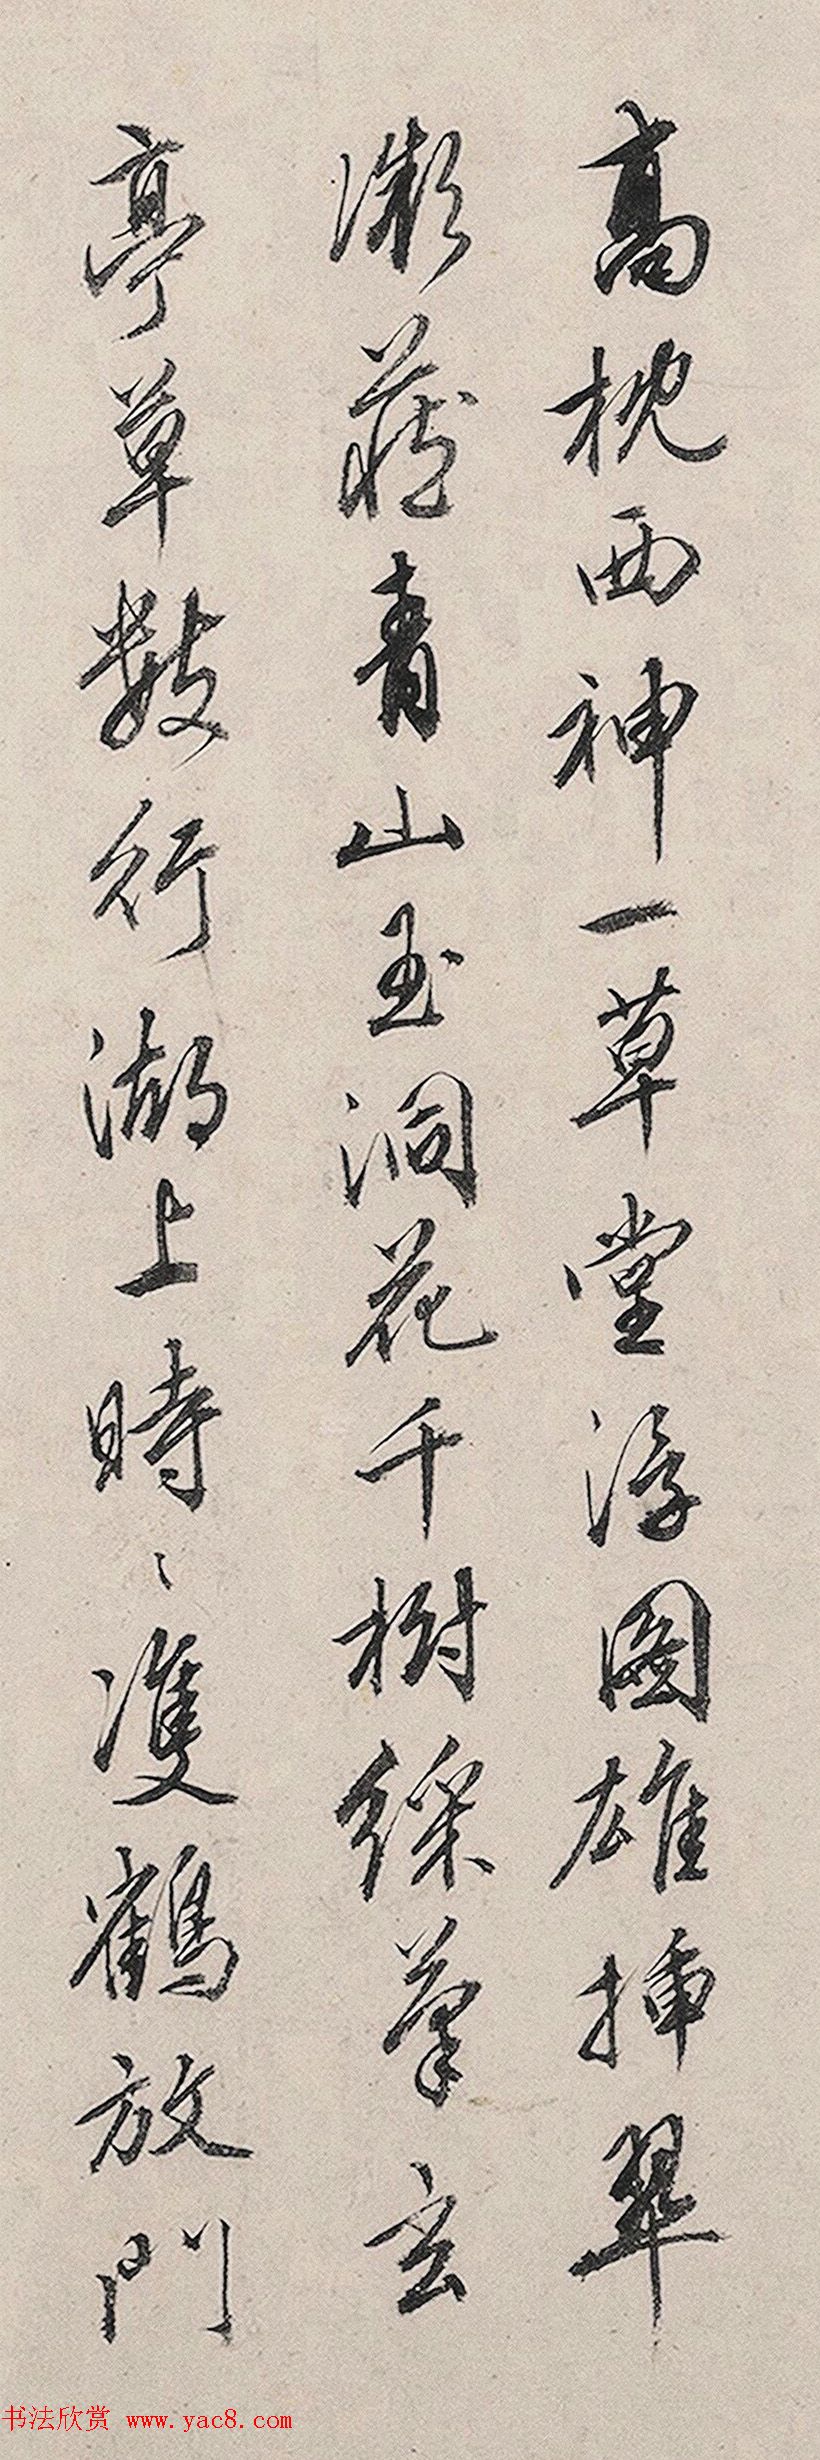 高枕西神一草堂浮圖雄揷翠
微藏青山玉洞花千樹綵筆玄
亭草數行湖上時〻雙鶴放門
书法欣赏 www.yac8.com